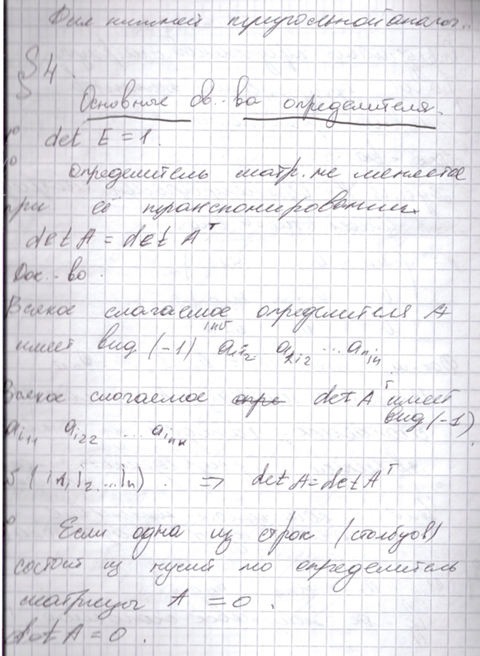 Для нижней треугольной аналог..
§4.
Основные св..ва определителя.
det E = 1.
определитель матр. не меняется
при её транспонировании.
det A = det Aᵀ
Док..во.
Всякое слагаемое определителя A
имеет вид (-1)
Всякое слагаемое det Aᵀ имеет
вид (-1)
a_{i_1 1} a_{i_2 2} ... a_{i_n n}
(i_1, i_2 ... i_n). => det A = det Aᵀ
Если одна из строк (столбцов)
состоит из нулей то определитель
матрицы A = 0.
det A = 0.